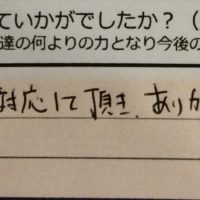 ていかがでしたか？（
達の何よりの力となり今後の
対応して頂き、ありが